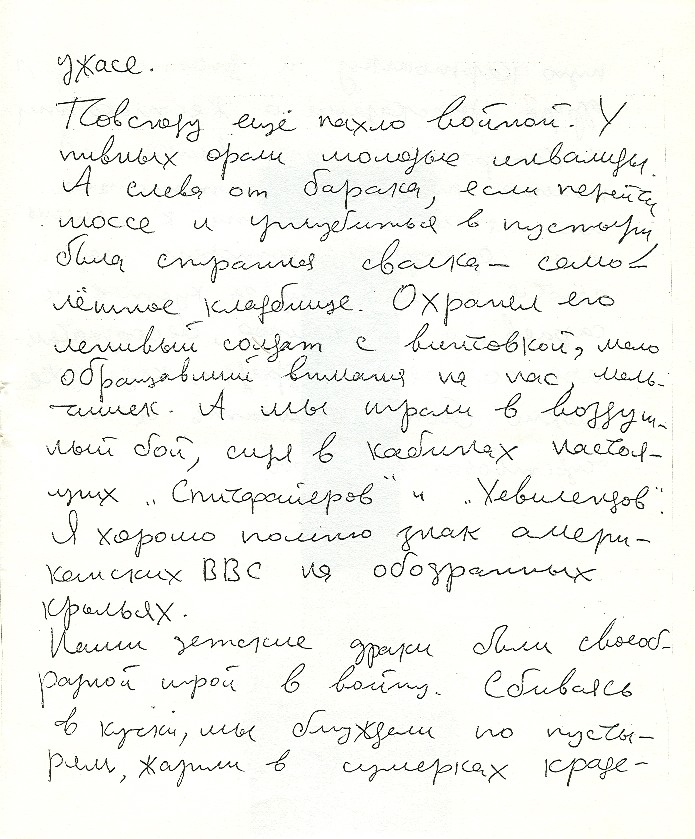 ужасе.
Повсюду ещё пахло войной. У
пивных орали молодые инвалиды.
А слева от барака, если перейти
шоссе и углубиться в пустыри,
была странная свалка — само-
лётное кладбище. Охранял его
ленивый солдат с винтовкой, мало
обращавший внимания на нас, маль-
чишек. А мы играли в воздуш-
ный бой, сидя в кабинах настоя-
щих „Спитфайеров" и „Хевилендов".
Я хорошо помню знак амери-
канских ВВС на ободранных
крыльях.
Наши детские драки были своеоб-
разной игрой в войну. Сбиваясь
в кучки, мы блуждали по пусты-
рям, жарили в сумерках краде-